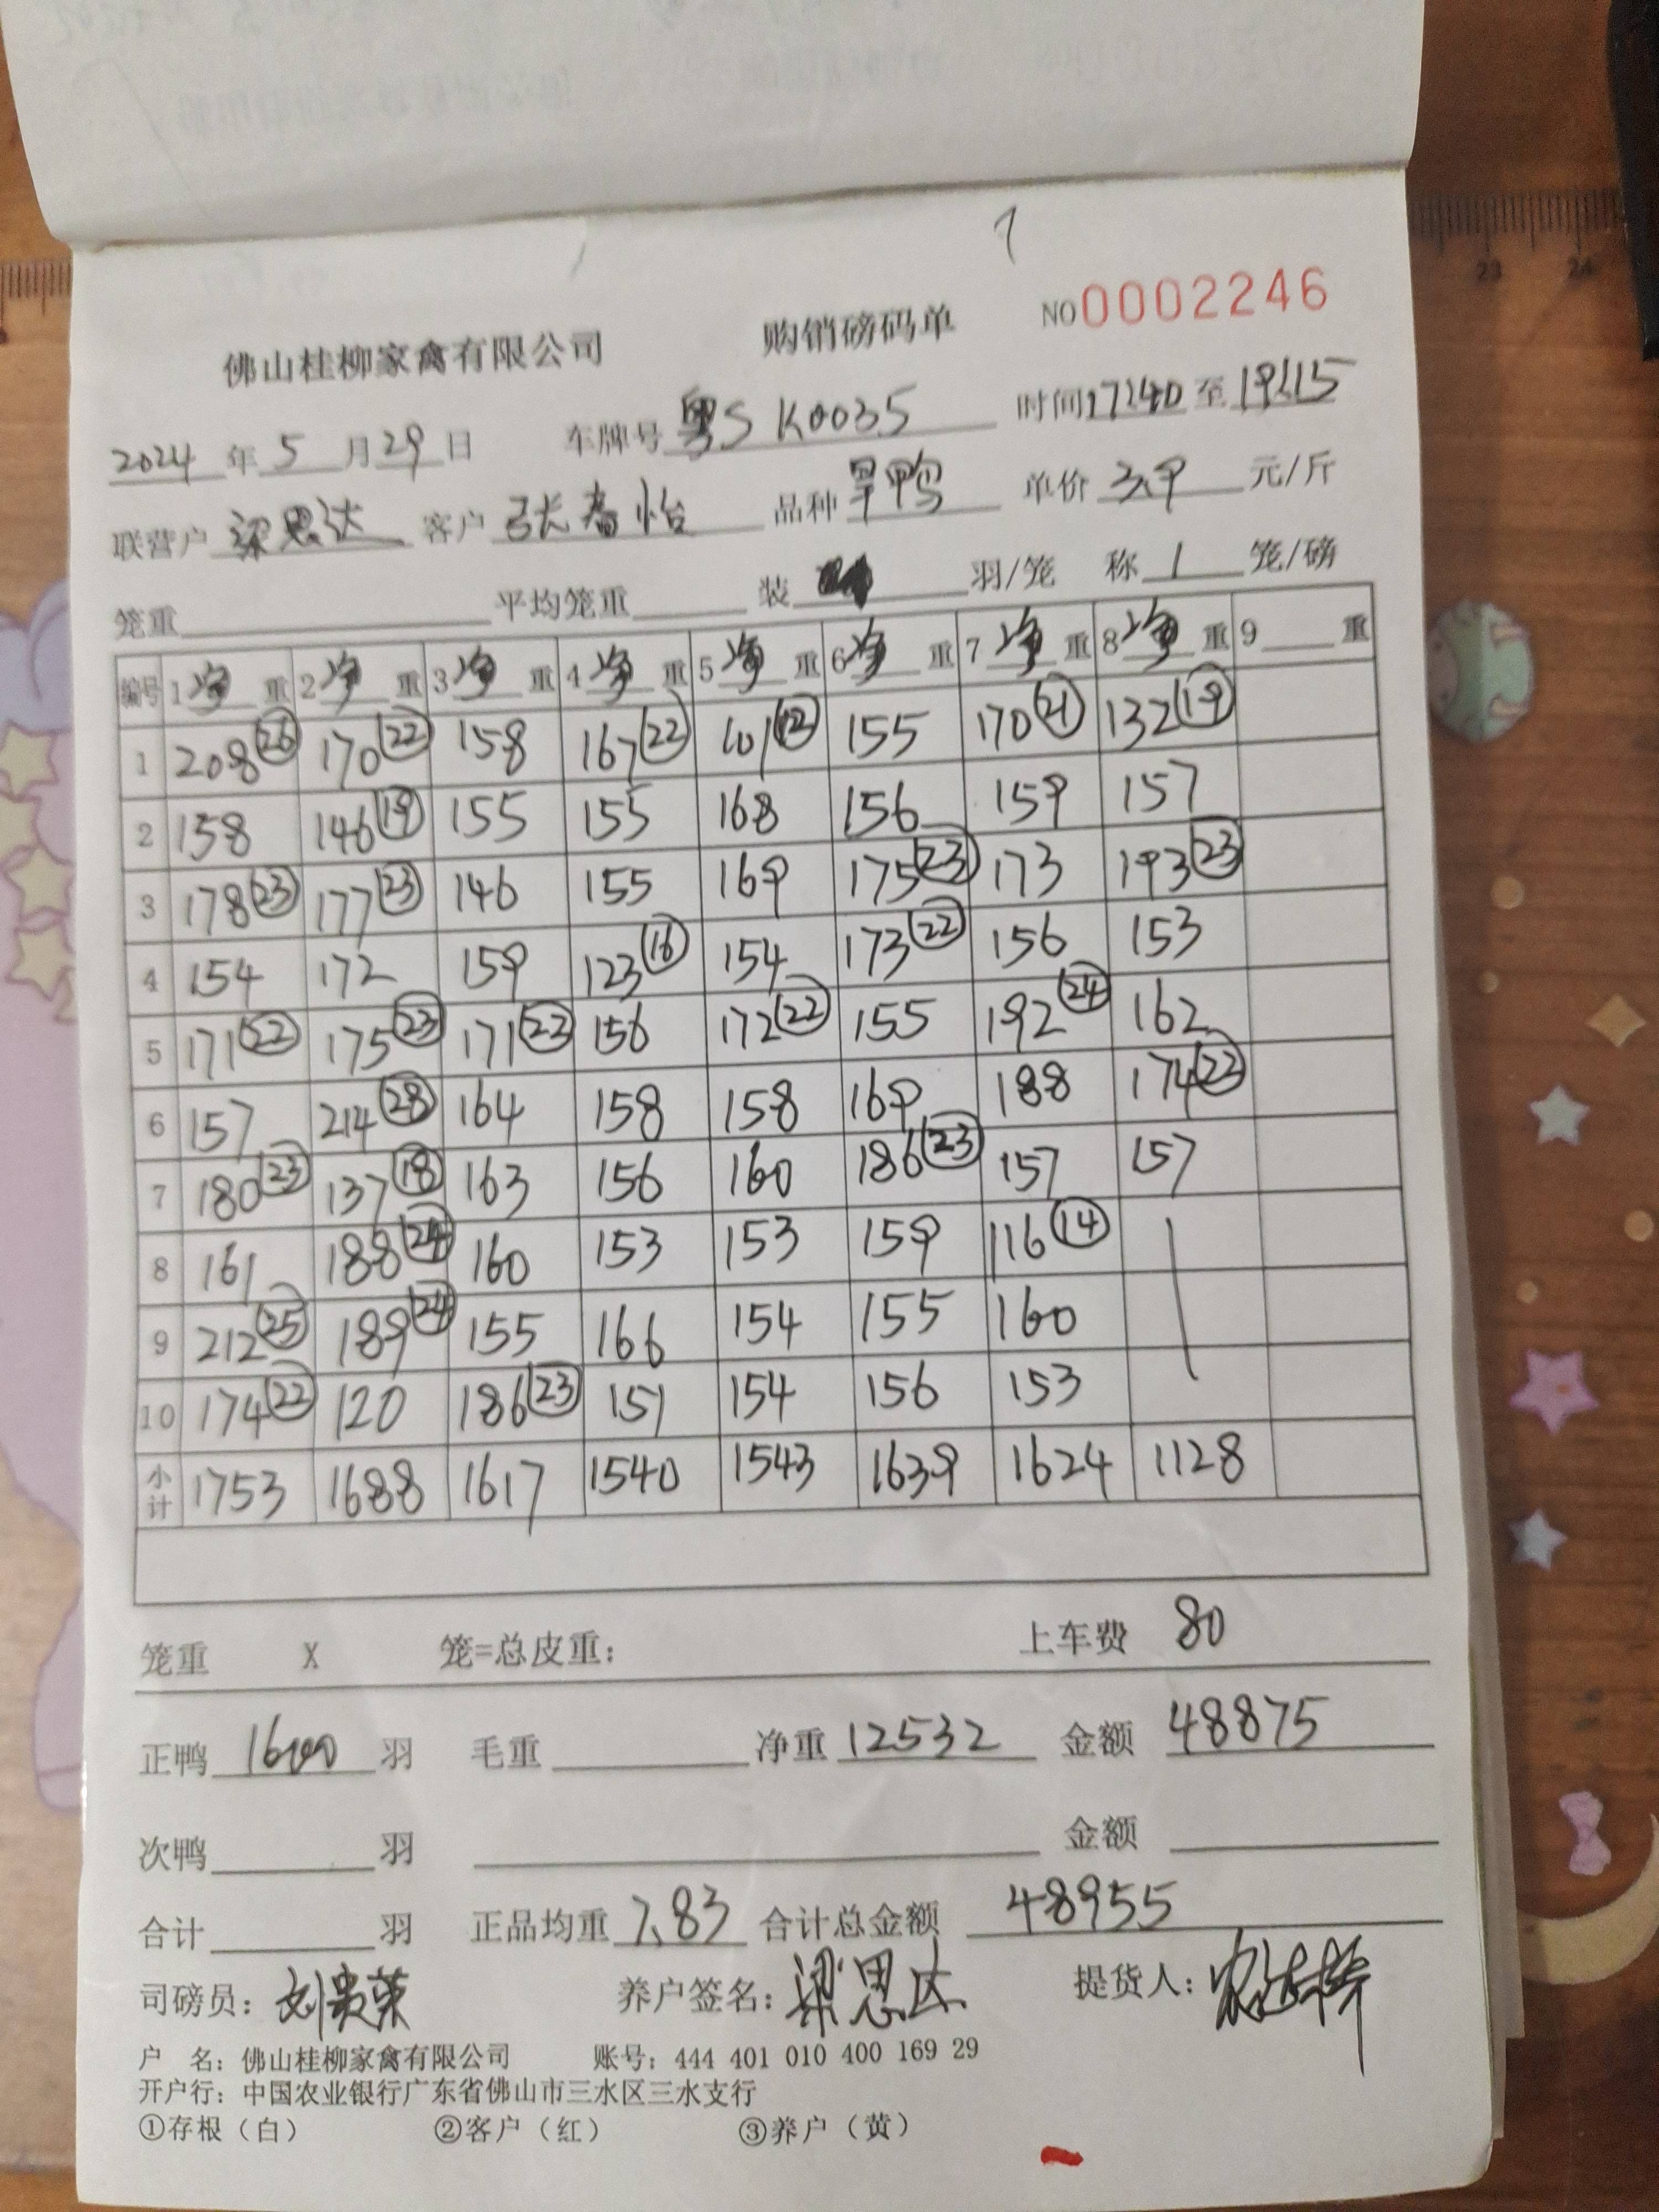 佛山桂柳家禽有限公司 购销磅码单 NO 0002246
2024 年 5 月 29 日 车牌号 粤S K0035 时间 17:40 至 19:15
联营户 梁思达 客户 张春怡 品种 旱鸭 单价 3.9 元/斤
笼重 平均笼重 装 羽/笼 称 1 笼/磅
编号 1 净 重 2 净 重 3 净 重 4 净 重 5 净 重 6 净 重 7 净 重 8 净 重 9 重
1 208 (26) 170 (22) 158 167 (22) 101 (12) 155 170 (21) 132 (19)
2 158 146 (19) 155 155 168 156 159 157
3 178 (23) 177 (23) 146 155 169 175 (23) 173 193 (23)
4 154 172 159 123 (16) 154 173 (22) 156 153
5 171 (22) 175 (23) 171 (22) 156 172 (22) 155 192 (24) 162
6 157 214 (28) 164 158 158 169 188 174 (22)
7 180 (23) 137 (18) 163 156 160 186 (23) 157 157
8 161 188 (24) 160 153 153 159 116 (14)
9 212 (25) 189 (24) 155 166 154 155 160
10 174 (22) 120 186 (23) 151 154 156 153
小计 1753 1688 1617 1540 1543 1639 1624 1128
笼重 X 笼=总皮重: 上车费 80
正鸭 1600 羽 毛重 净重 12532 金额 48875
次鸭 羽 金额
合计 羽 正品均重 7.83 合计总金额 48955
司磅员: 刘贵荣 养户签名: 梁思达 提货人:
户 名: 佛山桂柳家禽有限公司 账号: 444 401 010 400 169 29
开户行: 中国农业银行广东省佛山市三水区三水支行
①存根（白） ②客户（红） ③养户（黄）
23 24